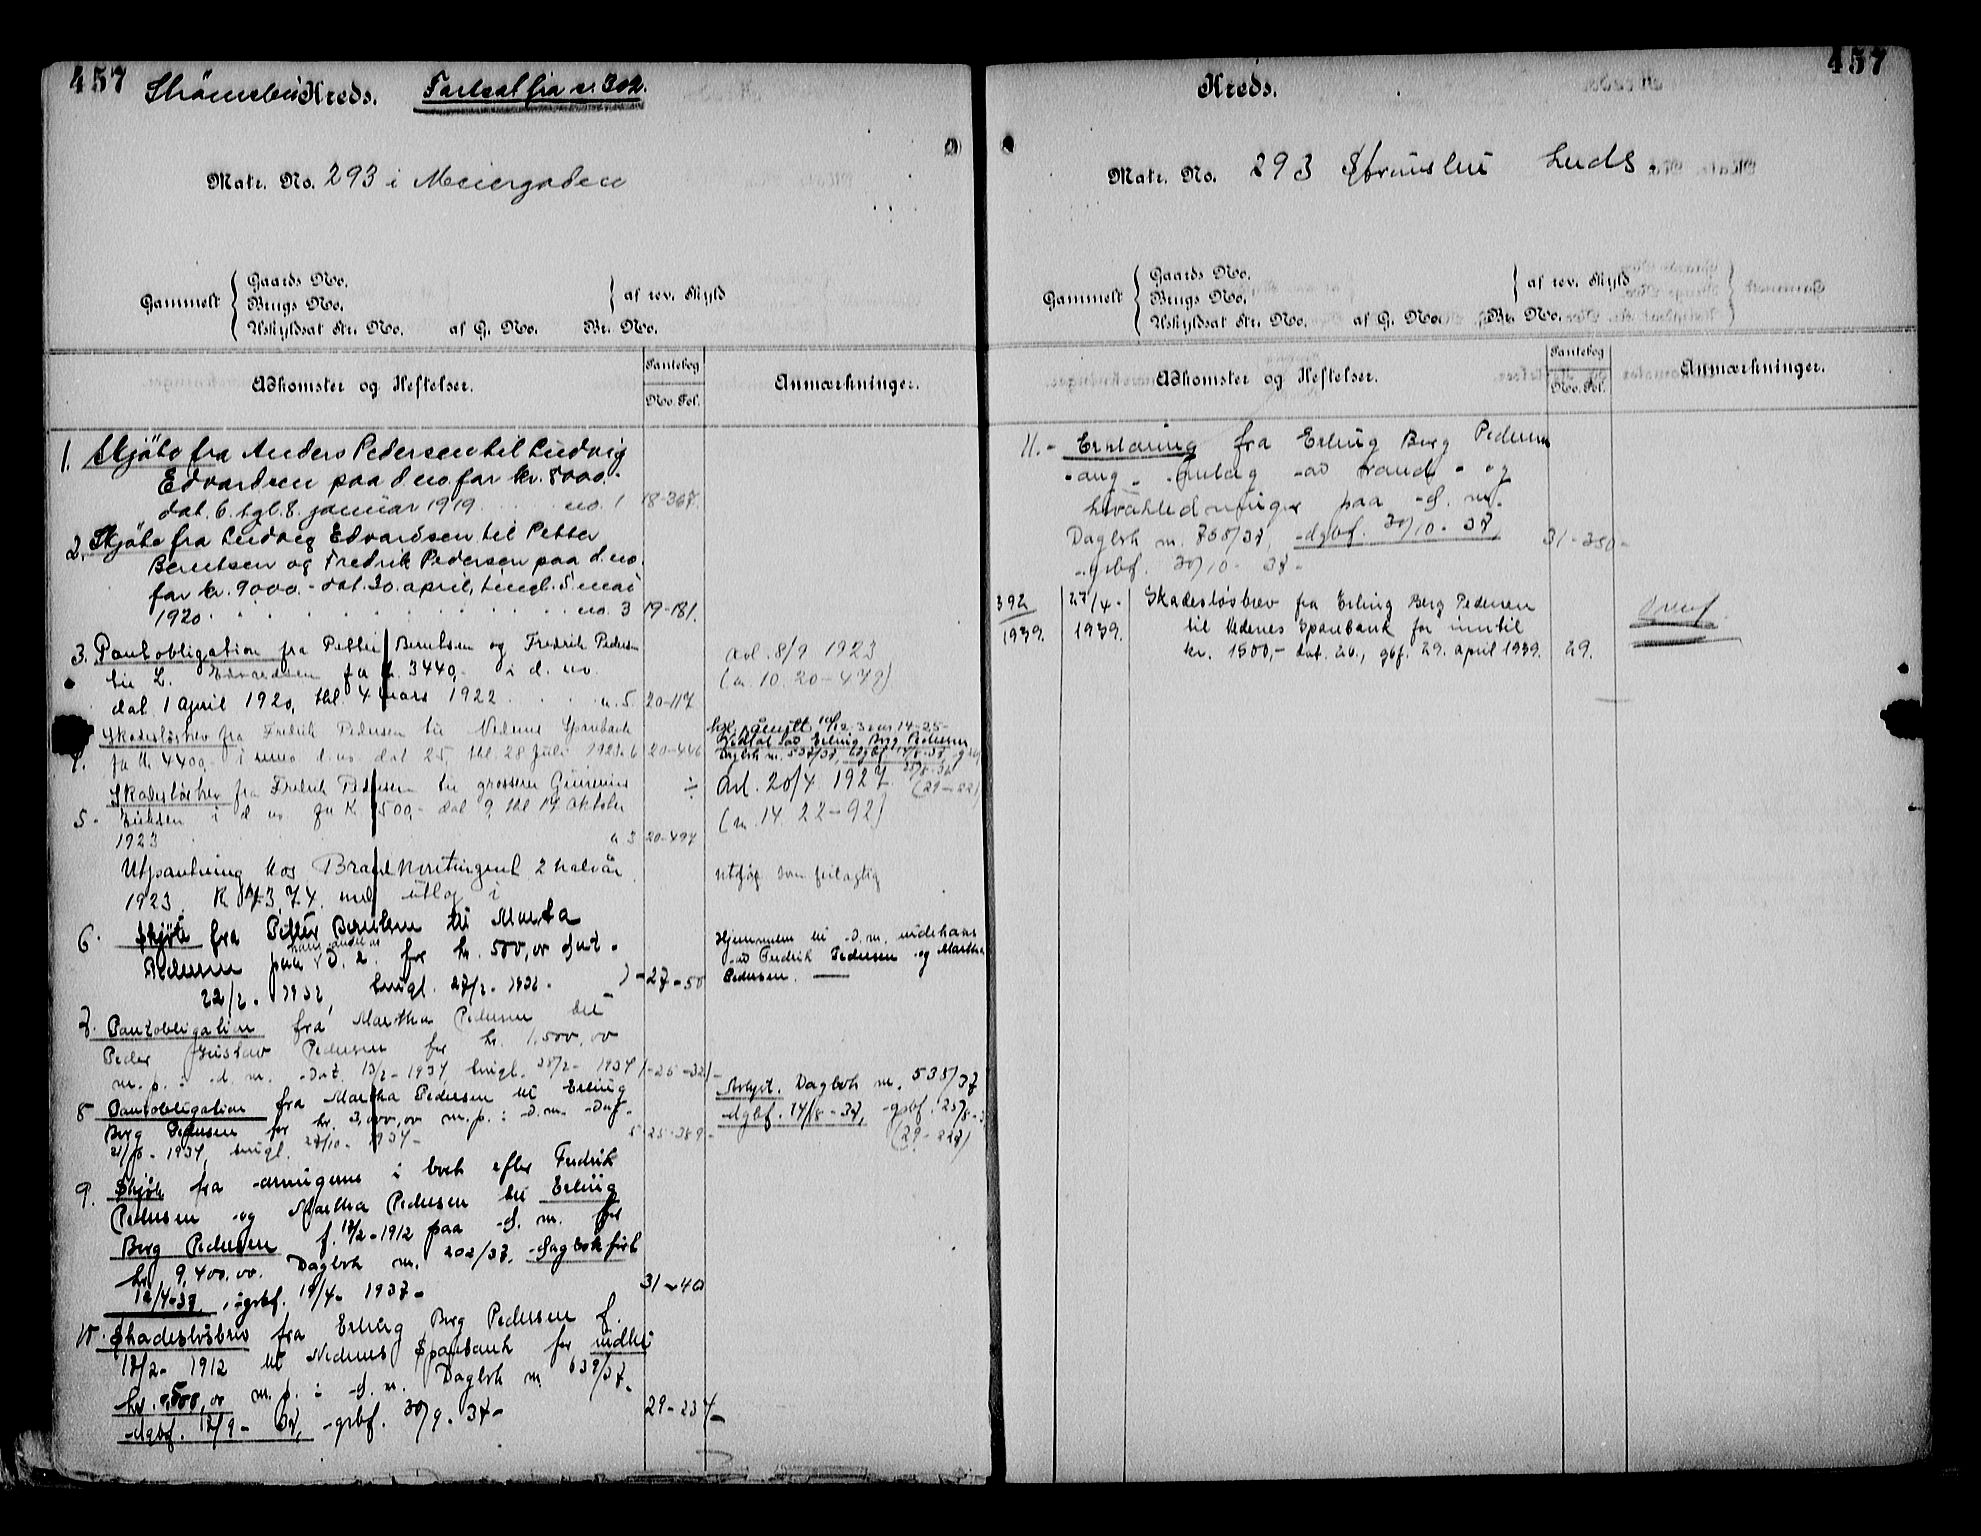 457 Strömsbu Kreds. Fortsat fra s. 302.
Matr. No. 293 i Meiergaden
Gammelt { Gaards No.
Brugs No.
Uskyldsat Str. No. af G. No. Br. No.
} af rev. Skyld
Adkomster og Heftelser.
Pantebog
No. Fol.
Anmærkninger.
1. Skjöte fra Anders Pedersen til Ludvig
Edvardsen paa d no for kr. 8000.-
dat. 6. tgl. 8. januar 1919 no. 1 18-367.
2. Skjöte fra Ludvig Edvardsen til Petter
Berntsen og Fredrik Pedersen paa d. no.
for kr. 9000.- dat. 30. april, tingl. 5 mai
1920 no. 3 19-181.
3. Pantobligation fra Petter Berntsen og Fredrik Pedersen
til L. Edvardsen for k. 3440,- i d. no.
dat 1 April 1920, thl. 4 mars 1922 n. 5. 20-117
avl. 8/9 1923
(n. 10. 20-478)
4. Skadesløsbrev fra Fredrik Pedersen til Nedenes Sparebank
for kr 4400,- i d. no dat 25, thl. 28 Juli 1923 n 6 20-446
Erling Berg Pedersen
Dagbok n. 537/37, dgbf 14/8-37,
5. Skadesløsbrev fra Fredrik Pedersen til grosserer Gunnius
i d no for K 500,- dat 9, thl 17 Oktober
1923 n 3 20-497
Avl. 20/4 1927
(n. 14. 22-92)
Utpantning hos Brandkontingent 2 halvår
1923. K 73,74 med utlæg i
utgår som feilagtig
6. Skjøte fra Petter Berntsen til Marta
Pedersen paa hans andel av D. n. for kr. 500,00 dat.
22/2. 1932, tingl. 27/2. 1932. 27-50
Hjemmelen til d. n. indehaves
av Fredrik Pedersen og Martha
Pedersen.
7. Pantobligation fra Martha Pedersen til
Peder Gustav Pedersen for kr. 1,500,00
m. p. i d. n. Dat. 13/2-1934, tingl. 28/2-1934 1-25-321-
8 Pantobligation fra Martha Pedersen til Erling
Berg Pedersen for kr. 3,000,00 m. p. i d. n. Dat.
1934, tingl. 27/10-1934- 5-25-389-
Avlyst. Dagbok n. 538/37
dgbf. 14/8-37, gbf. 25/8-3
(29-227)
9. Skjøte fra arvingerne i boet efter Fredrik
Pedersen og Martha Pedersen til Erling
Berg Pedersen f. 18/2-1912 paa d. n. for
kr 9,400.00. Dagbok n. 202/37. dagbokført
12/4-37, grbf. 19/4-1937- 31-40
10. Skadesløsbrev fra Erling Berg Pedersen f.
18/2-1912 til Nedenes Sparebank for indtil
m. p. i d. n. Dagbok n. 639/37.
dgbf. 12/9-37, grbf. 30/9-37- 29-237-
457
Kreds.
Matr. No. 293 Strømsbu kreds.
Gammelt { Gaards No.
Brugs No.
Uskyldsat Str. No. af G. No. Br. No.
} af rev. Skyld
Adkomster og Heftelser.
Pantebog
No. Fol.
Anmærkninger.
11.- Erklæring fra Erling Berg Pedersen
ang. anlæg av vand- og
kloakledninger paa d. n.
Dagbok n. 758/37, dgbf. 30/10-37,
grbf. 30/10-37- 31-350-
392
1939.
27/4-
1939.
Skadesløsbrev fra Erling Berg Pedersen
til Nedenes Sparebank for inntil
kr. 1500,- dat. 26., gbf. 29. april 1939. 29.